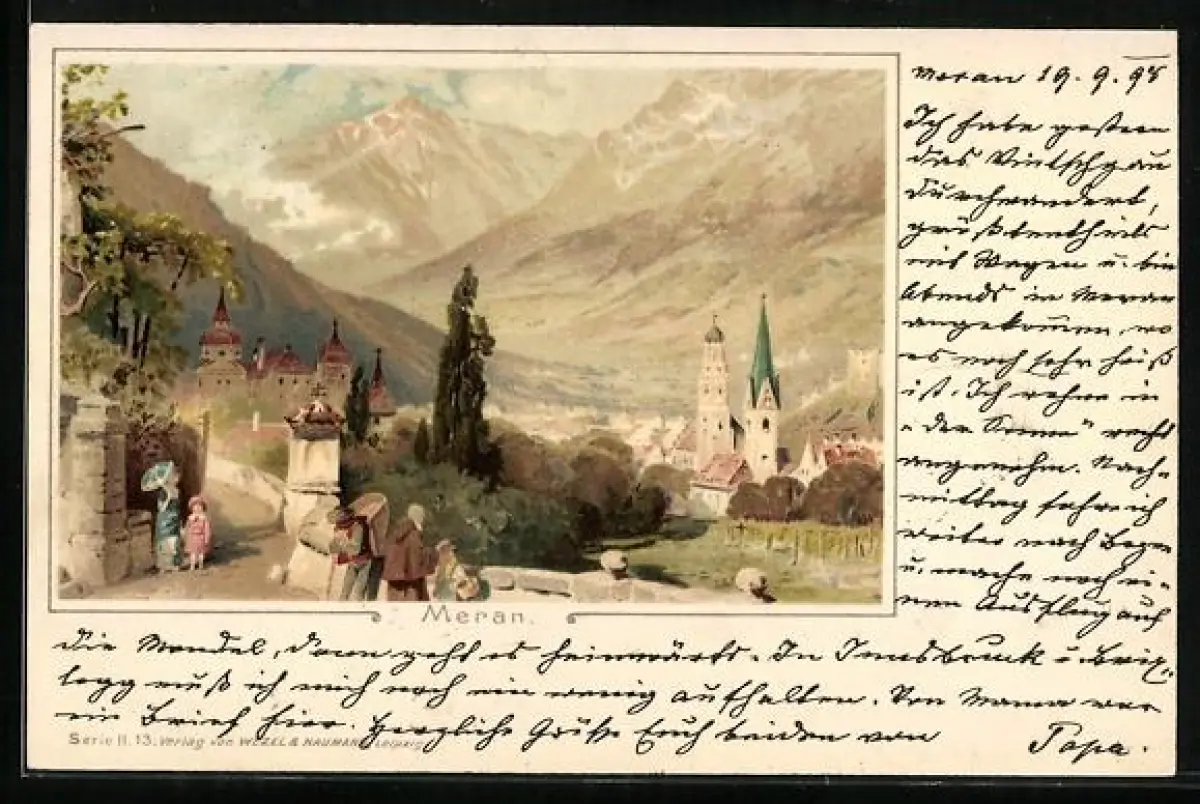 Meran 19. 9. 98
Ich habe gestern
das Vintschgau
durchwandert,
größtentheils
mit Wagen u. bin
Abends in Meran
angekom̅en, wo
es noch sehr heiß
ist. Ich wohne in
„der Sonne" recht
angenehm. Nach-
mittag fahre ich
weiter nach Bozen
u. mache noch ei-
nen Ausflug auf
die Mendel, dann geht es heimwärts. In Innsbruck u. Brix-
legg muß ich mich noch ein wenig aufhalten. Von Mama war
ein Brief hier. Herzliche Grüße Euch beiden von
Papa.
Meran.
Serie II. 13. Verlag von WEZEL & NAUMANN, Leipzig